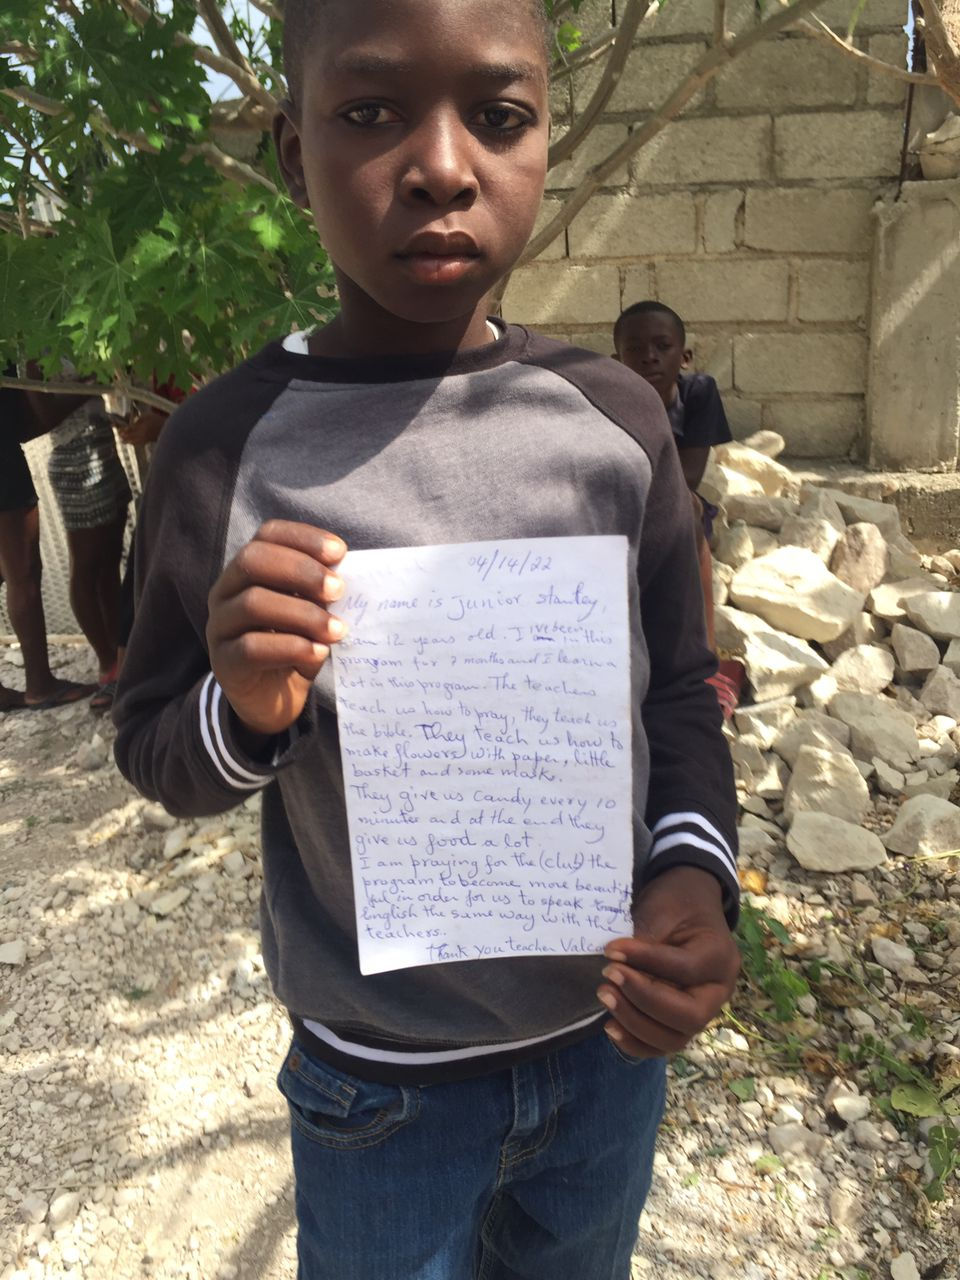 04/14/22
My name is Junior Stanley,
I am 12 years old. I ive been in this
program for 7 months and I learn a
lot in this program. The teachers
teach us how to pray, they teach us
the bible. They teach us how to
make flowers with paper, little
basket and some mask.
They give us candy every 10
minutes and at the end they
give us food a lot.
I am praying for the (club) the
program to become more beautif
ful in order for us to speak
English the same way with the
teachers.
Thank you teacher